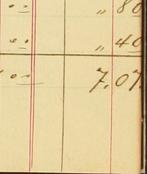 " 80
" 40
7.07